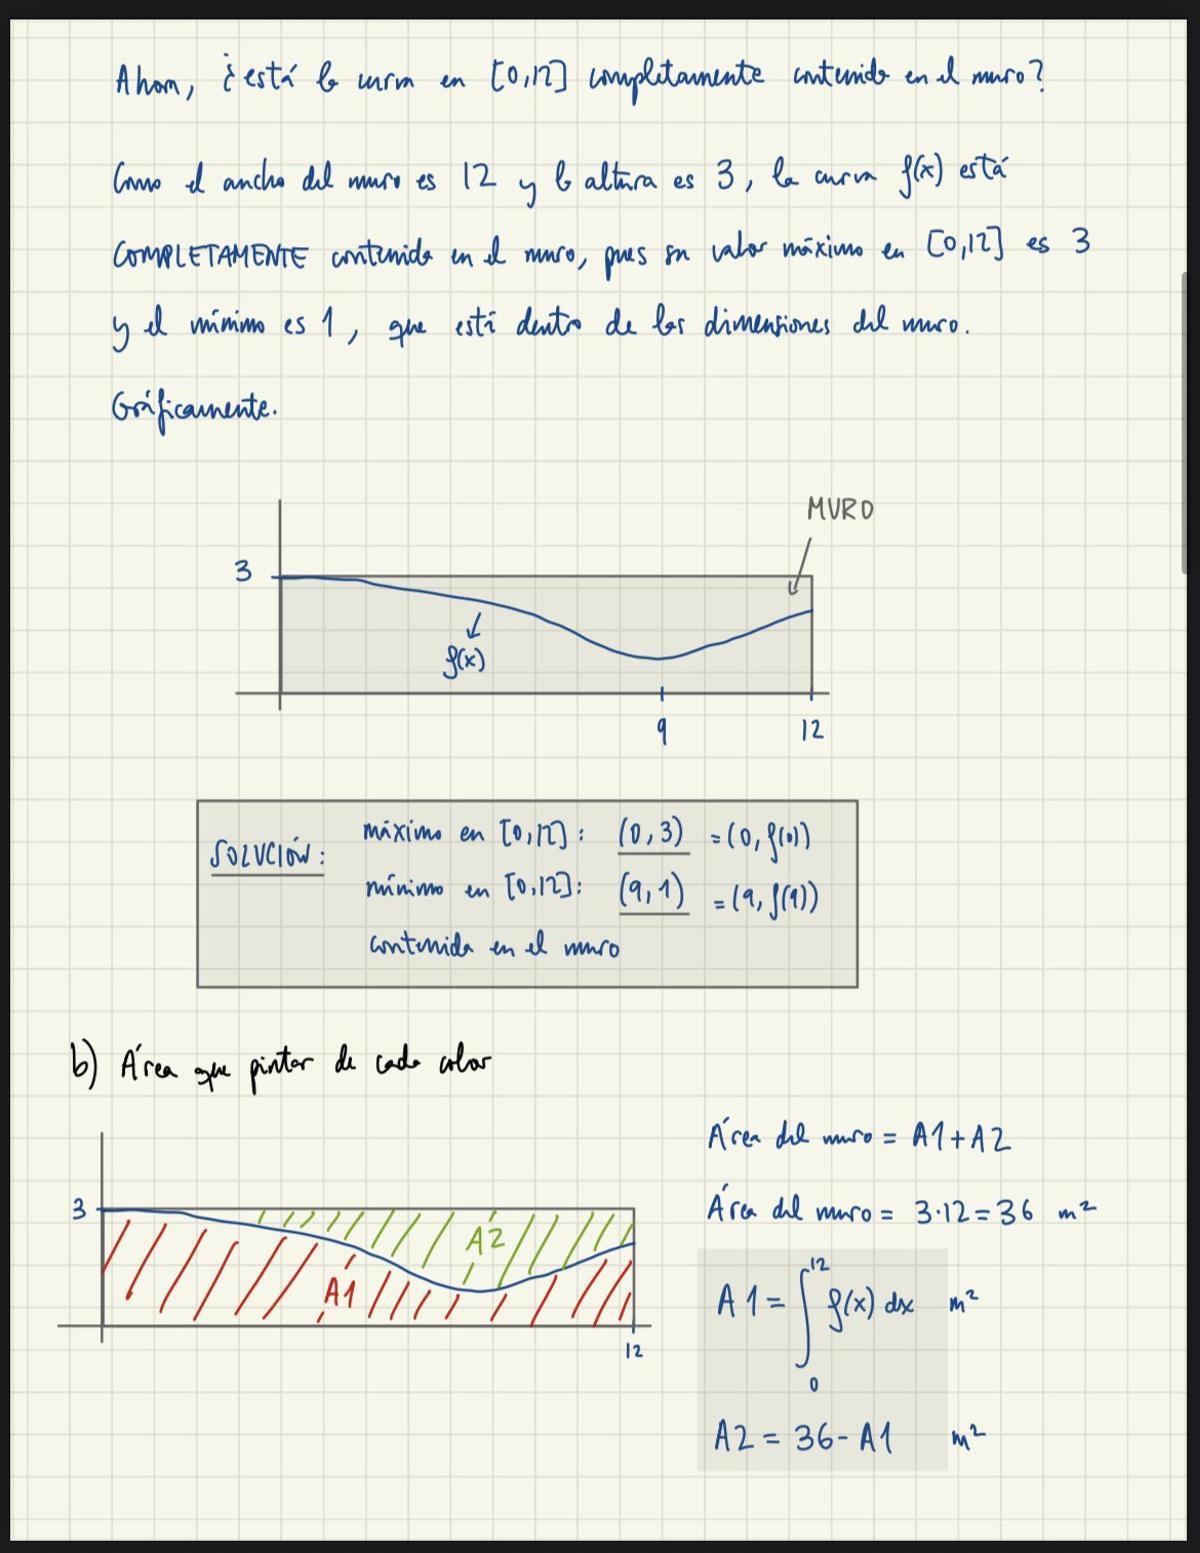 Ahora, ¿está la curva en [0,12] completamente contenida en el muro?
Como el ancho del muro es 12 y la altura es 3, la curva f(x) está
COMPLETAMENTE contenida en el muro, pues su valor máximo en [0,12] es 3
y el mínimo es 1, que está dentro de las dimensiones del muro.
Gráficamente.
MURO
3
f(x)
9
12
SOLUCIÓN:
máximo en [0,12]: (0,3) = (0, f(0))
mínimo en [0,12]: (9,1) = (9, f(9))
contenida en el muro
b) Área que pintar de cada color
3
A2
A1
12
Área del muro = A1+A2
Área del muro = 3·12=36 m²
A1 = ∫₀¹² f(x) dx m²
A2 = 36-A1 m²